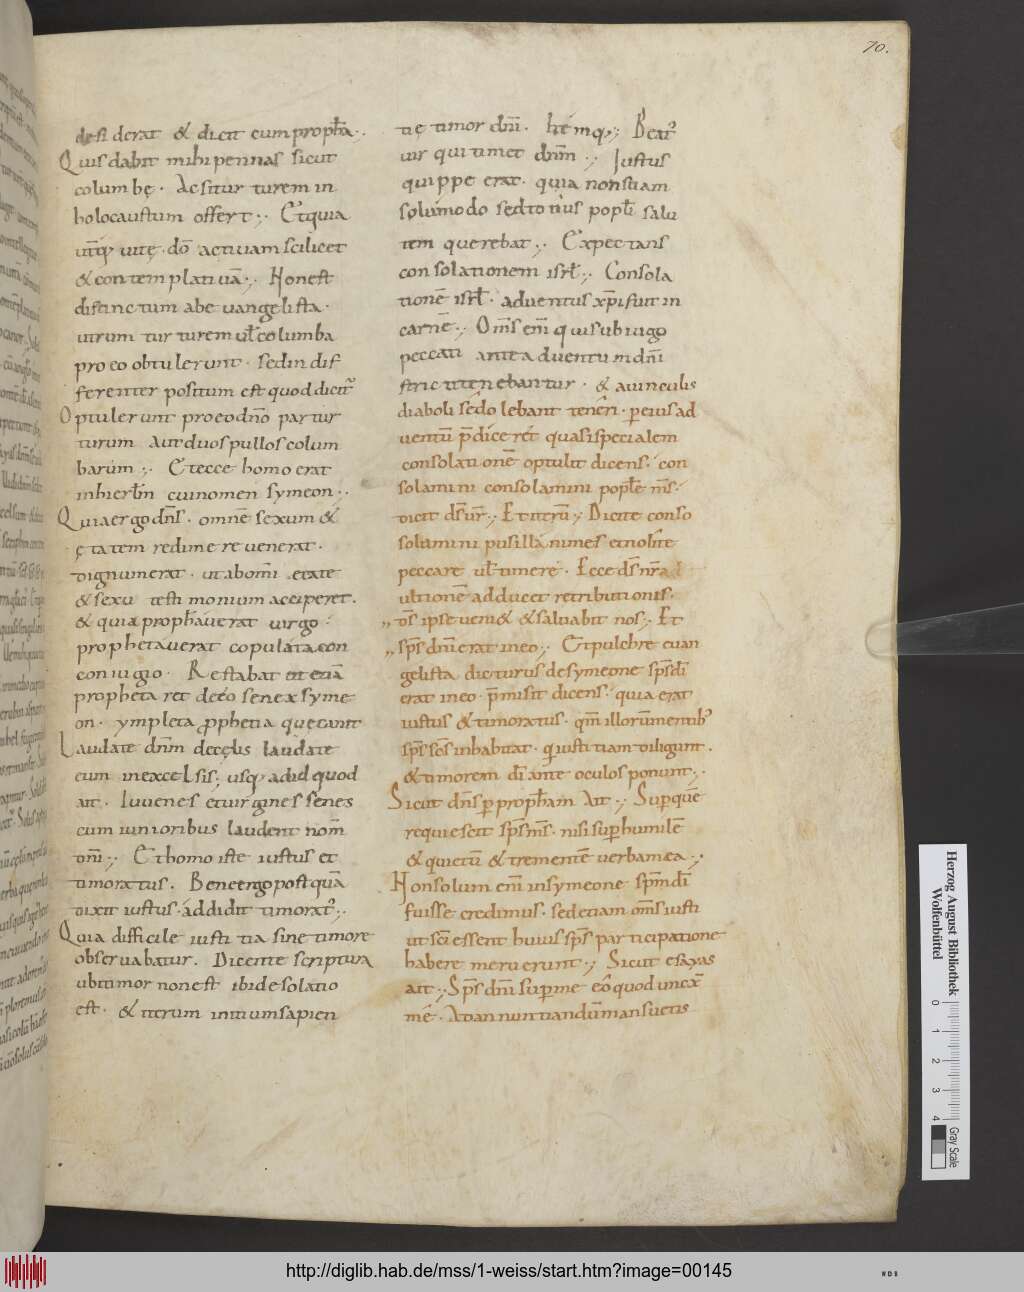 70.
desiderat & dicit cum proph̄a.
Quis dabit mihi pennas sicut
columbę. Ac si turturem in
holocaustum offert. Et quia
utręq; vitę. dō activam scilicet
& contemplativā. Non est
distinctum ab evangelista.
utrum turturem ul̄ columba
pro eo obtulerunt. sed indif
ferenter positum est quod dicit̄
Optulerunt pro eo dn̄o par tur
turum aut duos pullos colum
barum. Et ecce homo erat
in hierl̄m cui nomen symeon.
Quia ergo dn̄s. omnē sexum &
ętatem redimere venerat.
dignum erat. ut ab omi etate
& sexu testimonium acciperet.
& quia proph̄averat virgo
prophetaverat copulata con
coniugio. Restabat et etiā
prophetaret de eo senex syme
on. ympleta prophetia que canit
Laudate dn̄m de cęlis laudate
eum in excelsis; usq; ad id quod
ait. Iuvenes et virgines senes
cum iunioribus laudent nom̄
dn̄i. Et homo iste iustus et
timoratus. Bene ergo postquā
dixit iustus. addidit timorat̄.
Quia difficile iustitia sine timore
observabatur. Dicente scriptura
ubi timor non est ibi desolatio
est. & iterum initium sapien
tię timor dn̄i. Beat̄
vir qui timet dn̄m. Iustus
quippe erat. quia non suam
solummodo sed totius popl̄i salu
tem querebat. Expectans
consolationem isrl̄. Consola
tionē isrl̄. adventus xp̄i fuit in
carnē. Om̄s eni qui sub iugo
peccati ante adventum dn̄i
stricti tenebantur. & a vinculis
diaboli se dolebant teneri. per eius ad
ventū p̄diceret quasi specialem
consolationē optulit dicens. con
solamini consolamini popl̄e m̄s.
dicit ds̄ ur̄. Et iterū; Dicite conso
lamini pusillanimes et nolite
peccare ul̄ timere. Ecce ds̄ nr̄
ultionē adducet retributionis.
ds̄ ipse veni& & salvabit nos. Et
sp̄s dn̄i erat in eo. Et pulchre evan
gelista dicturus de symeone sp̄s dī
erat in eo. p̄misit dicens. quia erat
iustus & timoratus. qm̄ illorum mentib;
sp̄s sc̄s inhabitat. qui iustitiam diligunt.
& timorem dī ante oculos ponunt.
Sicut dn̄s p proph̄am ait. Super quē
requiescit sp̄s m̄s. nisi sup humilē
& quietū & trementē verba mea.
Non solum eni in symeone sp̄m dī
fuisse credimus. sed etiam om̄s iusti
ut sc̄i essent huius sp̄s participatione
habere meruerunt. Sicut esayas
ait. Sp̄s dn̄i super me eo quod unx̄
mē. Ad annuntiandū mansuetis
Herzog August Bibliothek
Wolfenbüttel
0 1 2 3 4
Gray Scale
http://diglib.hab.de/mss/1-weiss/start.htm?image=00145